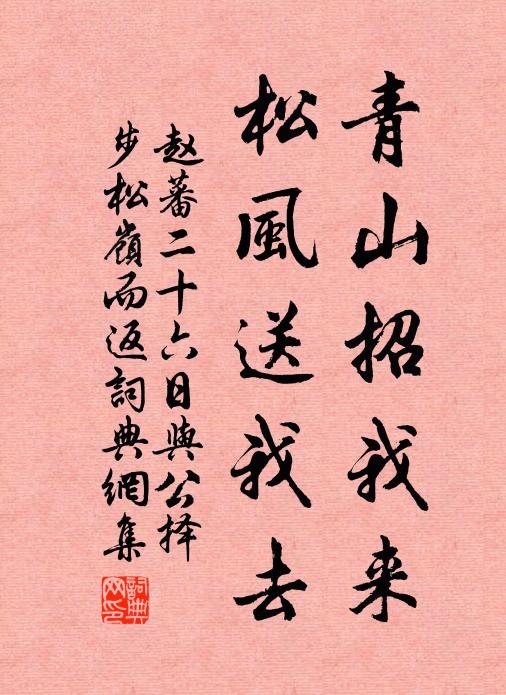 青山招我来
松風送我去
赵蕃二十六日與公择
步松嶺而返詞典網集
詞典网印